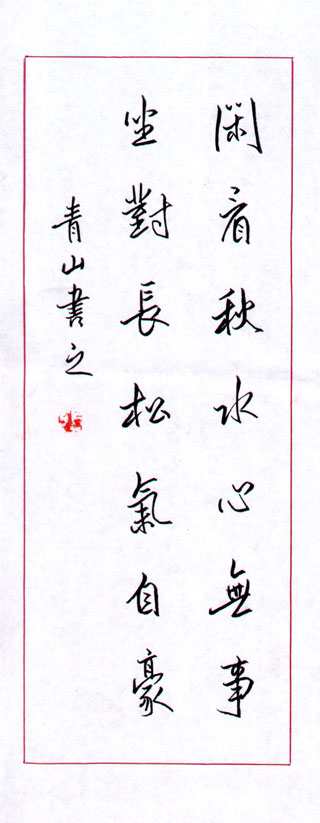 閑看秋水心無事
坐對長松氣自豪
青山書之